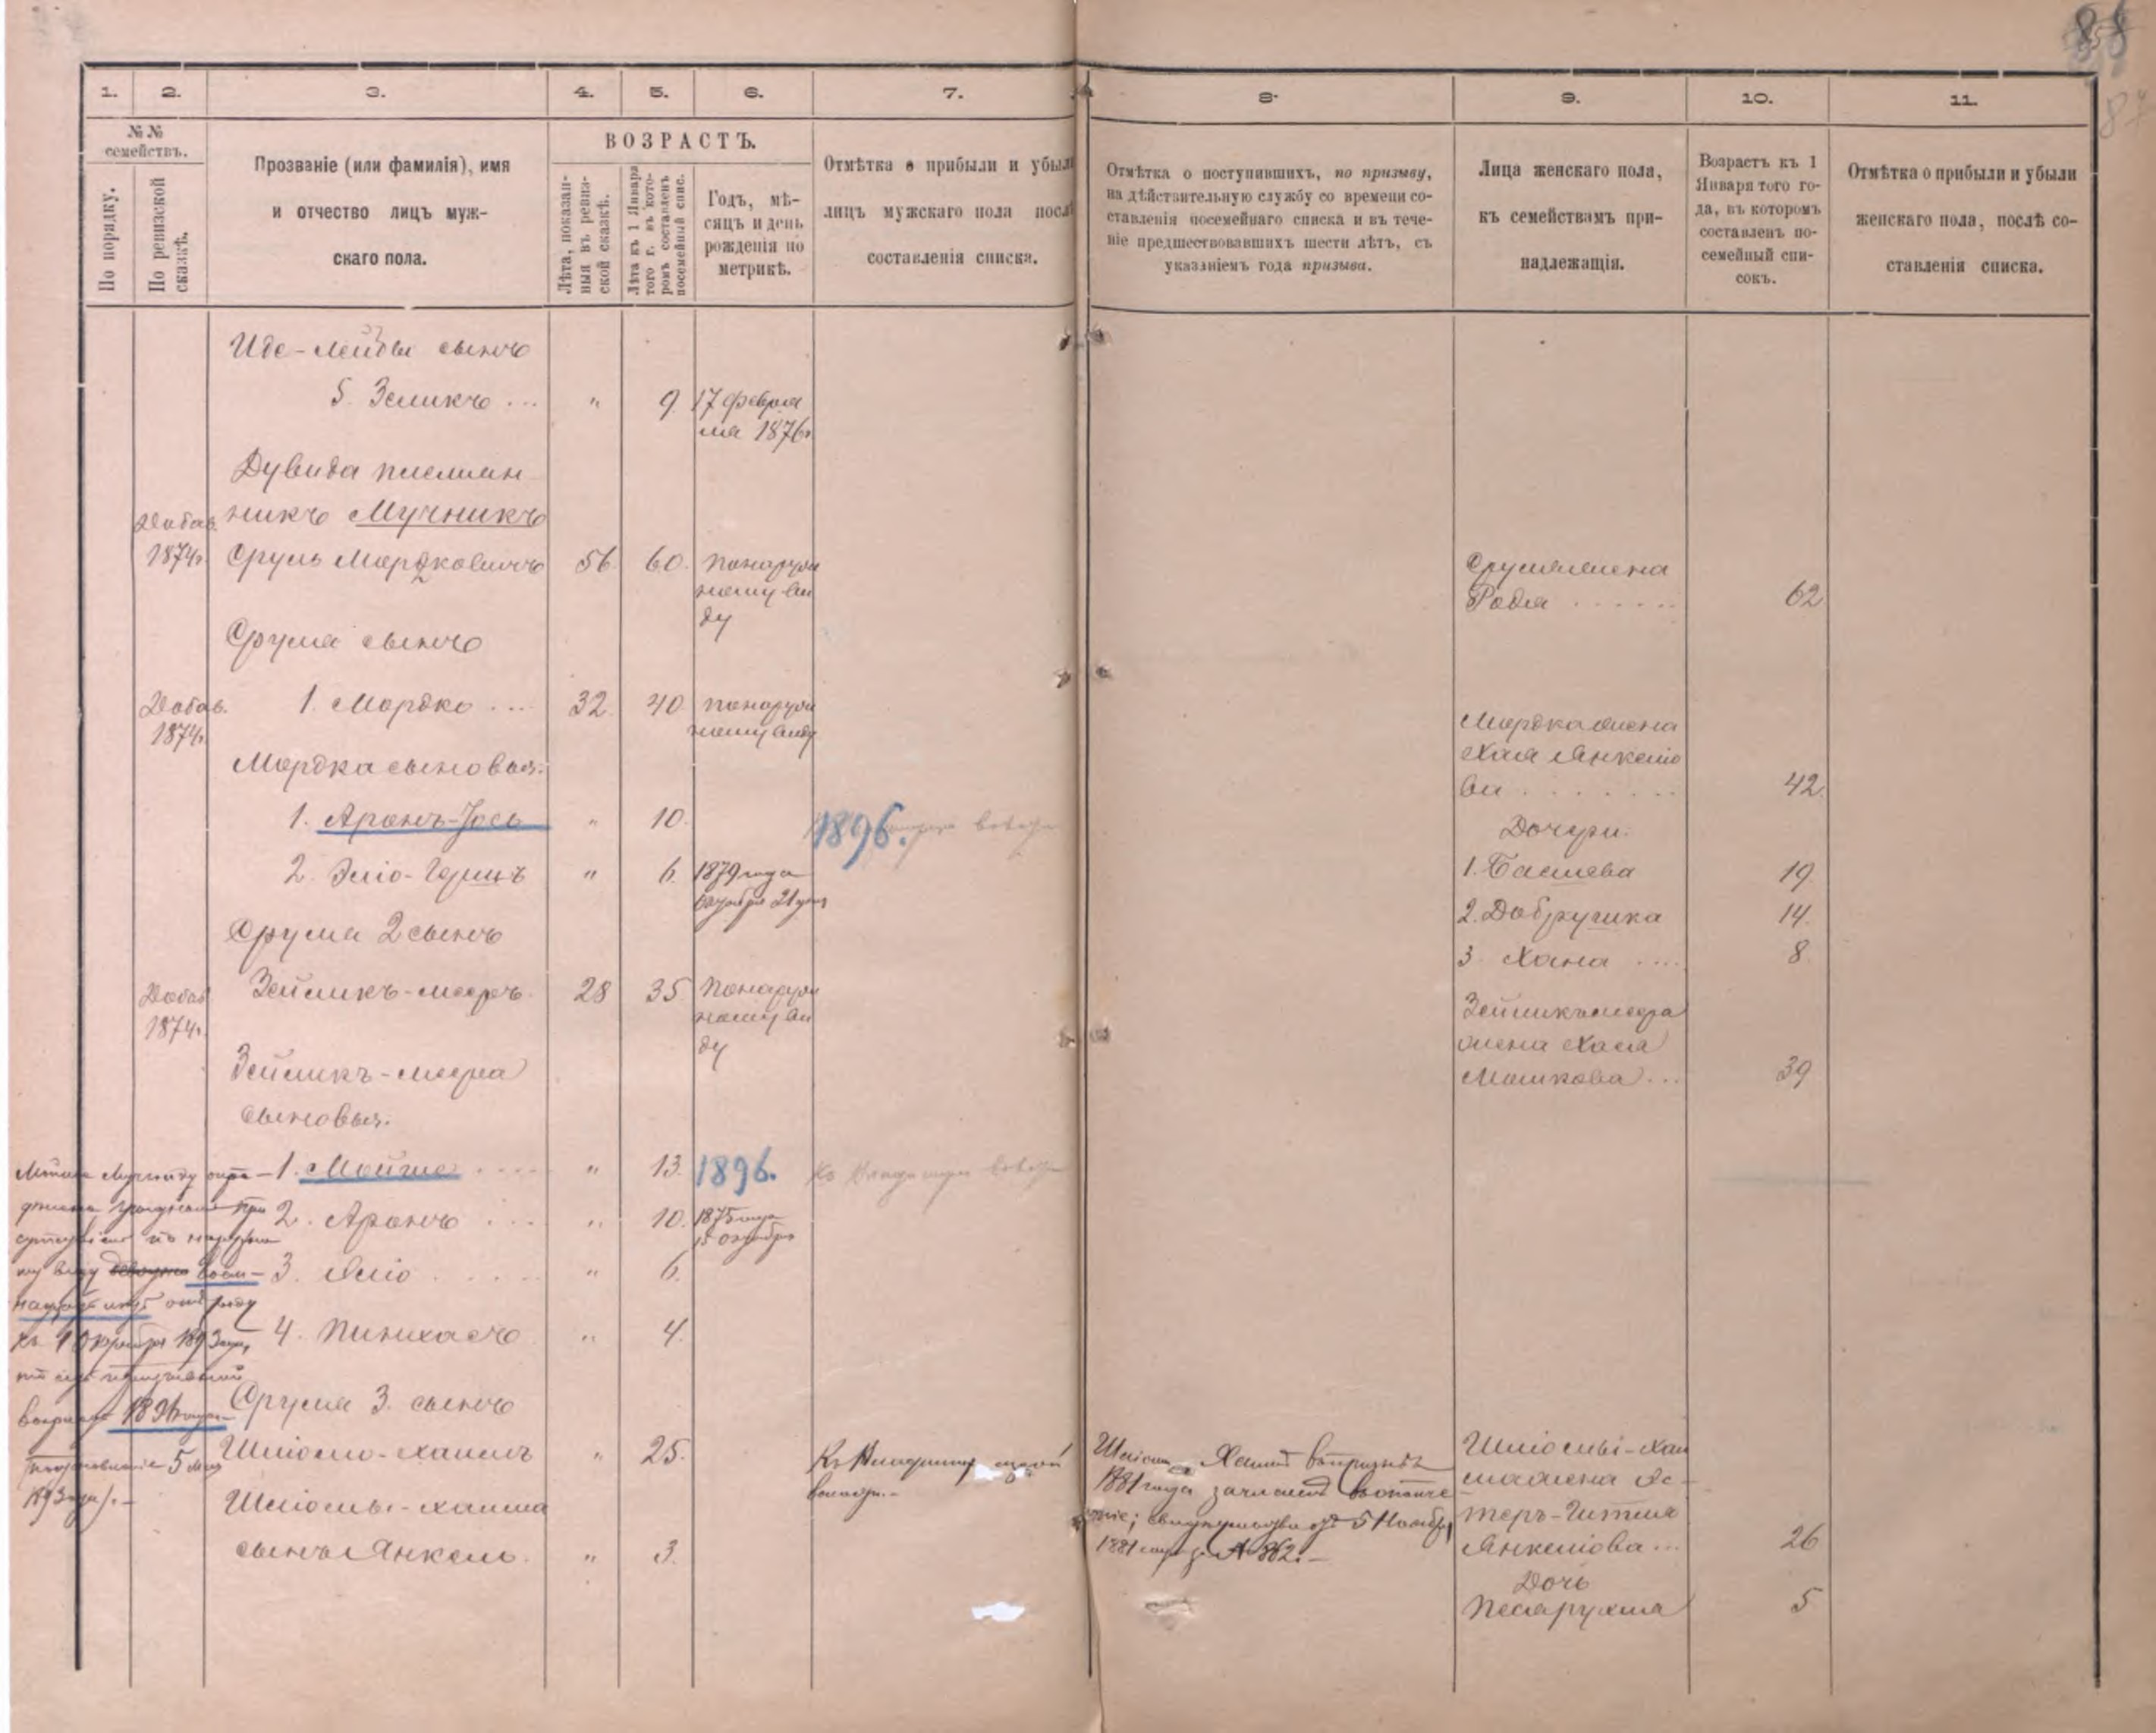 88
87
1. 2. 3. 4. 5. 6. 7. 8. 9. 10. 11.
№ №
семействъ.
По порядку.
По ревизской
сказкѣ.
Прозваніе (или фамилія), имя
и отчество лицъ муж-
скаго пола.
ВОЗРАСТЪ.
Лѣта, показан-
ныя въ ревиз-
ской сказкѣ.
Лѣта къ 1 Января
того г. въ кото-
ромъ составленъ
посемейный спис.
Годъ, мѣ-
сяцъ и день
рожденія по
метрикѣ.
Отмѣтка о прибыли и убыли
лицъ мужскаго пола послѣ
составленія списка.
Отмѣтка о поступившихъ, по призыву,
на дѣйствительную службу со времени со-
ставленія посемейнаго списка и въ тече-
ніе предшествовавшихъ шести лѣтъ, съ
указаніемъ года призыва.
Лица женскаго пола,
къ семействамъ при-
надлежащія.
Возрастъ къ 1
Января того го-
да, въ которомъ
составленъ по-
семейный спи-
сокъ.
Отмѣтка о прибыли и убыли
женскаго пола, послѣ со-
ставленія списка.
Иде-Лейбы сынъ
5. Зеликъ ... " 9. 17 февра
ля 1876г.
Дувида племян-
никъ Мучникъ
Добав.
1874г. Сруль Мордковичъ 56. 60. По наруж
ному ви
ду
Сруля жена
Родля ...... 62
Сруля сынъ
Добав.
1874г. 1. Мордко ... 32. 40. По наруж
ному виду
Мордка жена
Хая Янкеліо
ва ....... 42.
Мордка сыновья:
1. Аронъ-Іось " 10. 1896.
Дочери:
2. Эліо-Гершъ " 6. 1879 года
Октября 21 дня
1. Башева 19.
2. Добрушка 14.
Сруля 2 сынъ
3. Хана .... 8.
Добав.
1874г. Зейликъ-Мееръ 28 35. По наруж
ному ви
ду
Зейликъ-Меера
жена Хася
Мошкова ... 39
Зейликъ-Меера
сыновья:
1. Мойше .... " 13. 1896. Къ Владимиру
2. Аронъ .... " 10. 1875 года
15 октября
3. Эліо ..... " 6.
4. Пинхасъ " 4.
Сруля 3. сынъ
Шліомо-Хаимъ " 25.
Шліомы-Хаима
сынъ Янкель. " 3.
призыва
1881 года зачисленъ въ ополче
ніе; свидѣтельство отъ 5 Ноября
1881 года за № 862.—
Шліомы-Хаи
ма жена Эс-
теръ-Гитля
Янкеліова ... 26
Дочь
Песярухля 5